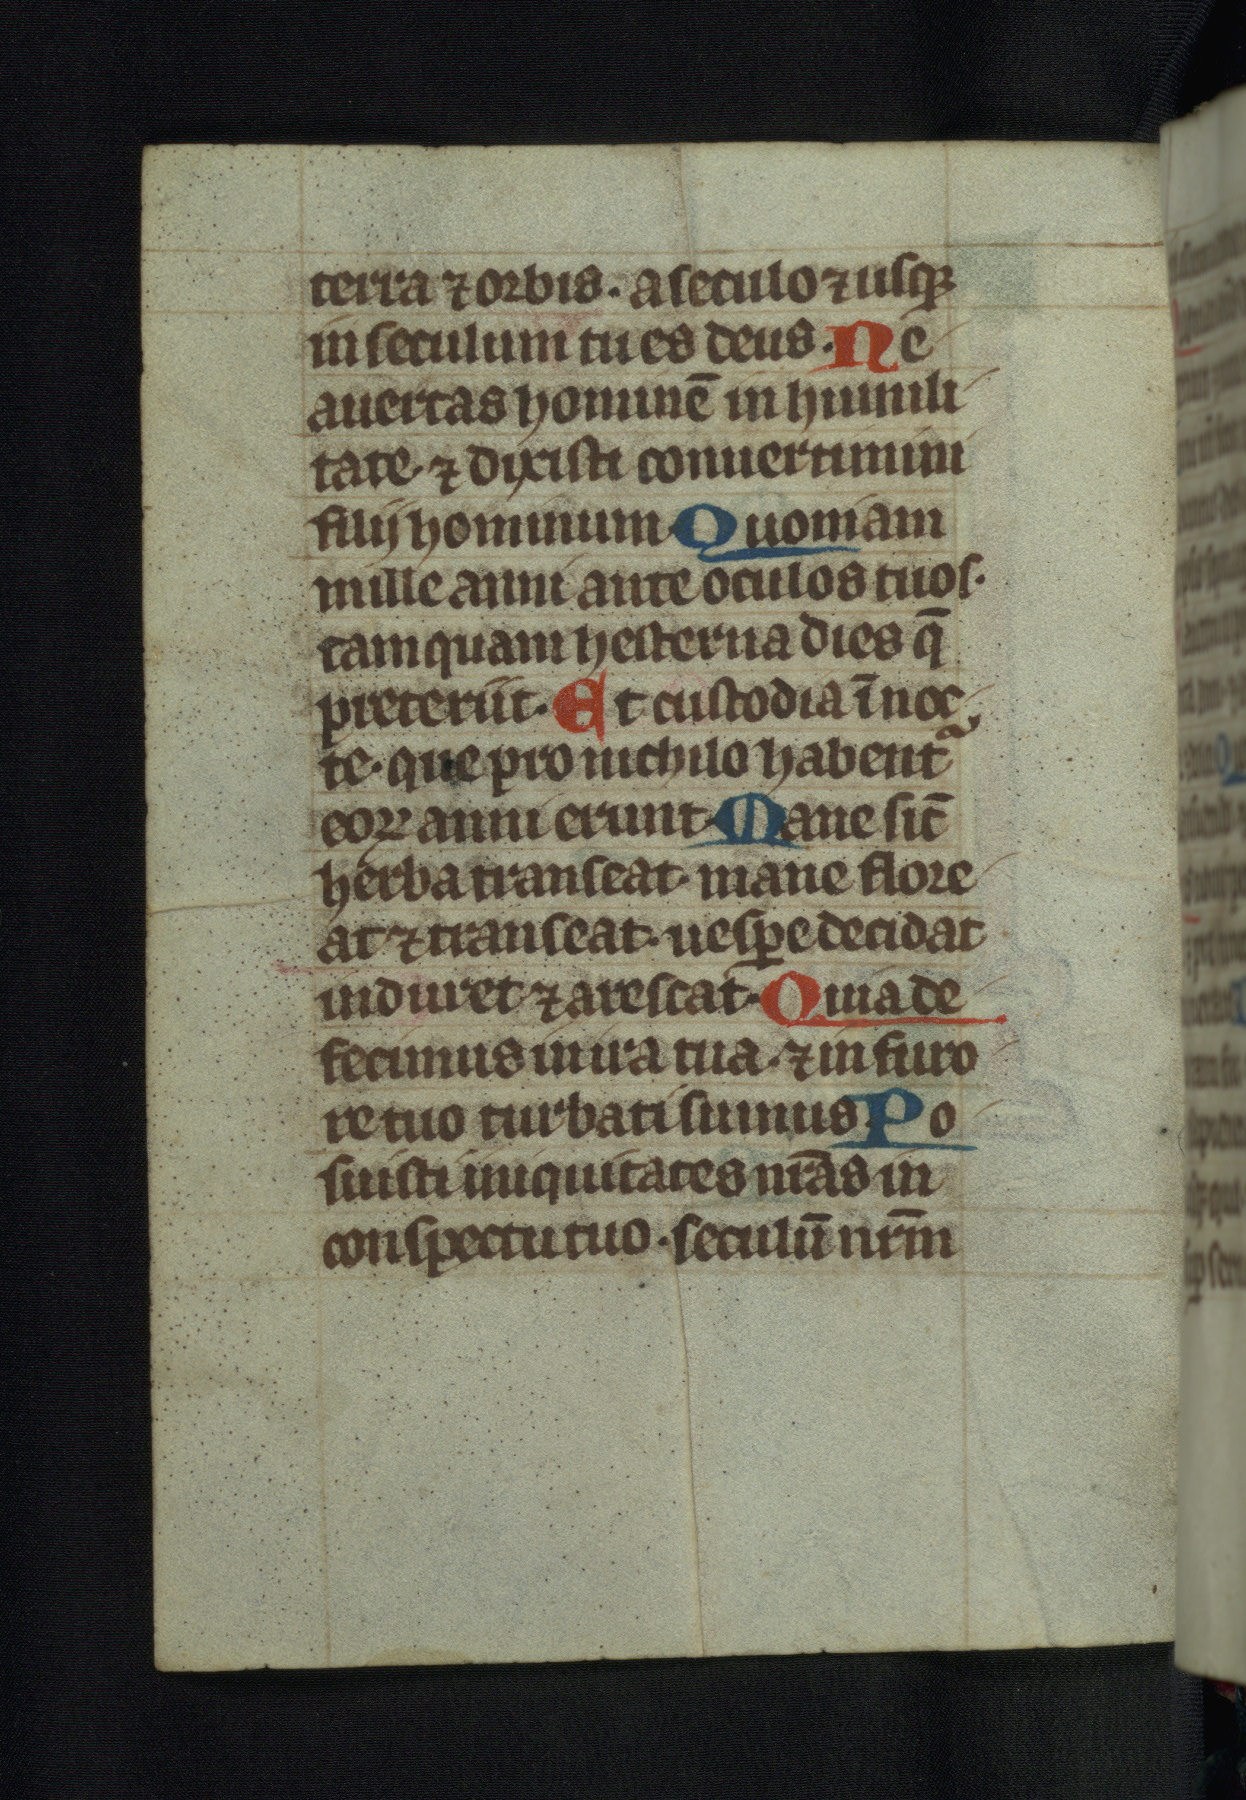 terra ⁊ orbis· a seculo ⁊ usqꝫ
in seculum tu es deus· Ne
auertas hominē in humili
tate· ⁊ dixisti conuertimini
filij hominum· Quoniam
mille anni ante oculos tuos·
tamquam hesterna dies q̄
preteriit· Et custodia ī noc
te· que pro nichilo habent᷑
eoꝝ anni erunt· Mane sic̄
herba transeat· mane flore
at ⁊ transeat· uesꝑe decidat
induret ⁊ arescat· Quia de
fecimus in ira tua· ⁊ in furo
re tuo turbati sumus· Po
suisti iniquitates nr̄as in
conspectu tuo· seculū nr̄m